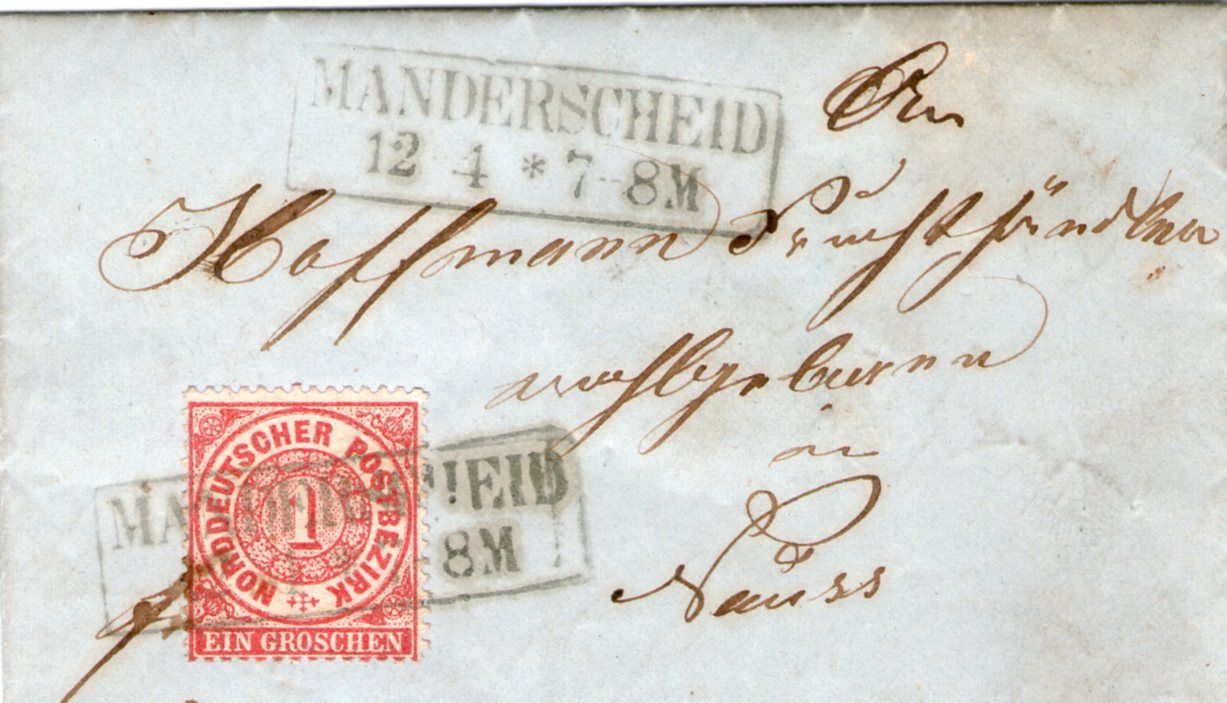 MANDERSCHEID
12 4 * 7-8M
Hoffmann Fruchthändler
wohlgeboren
in
Neuss
NORDDEUTSCHER POSTBEZIRK
1
EIN GROSCHEN
MA EID
8M